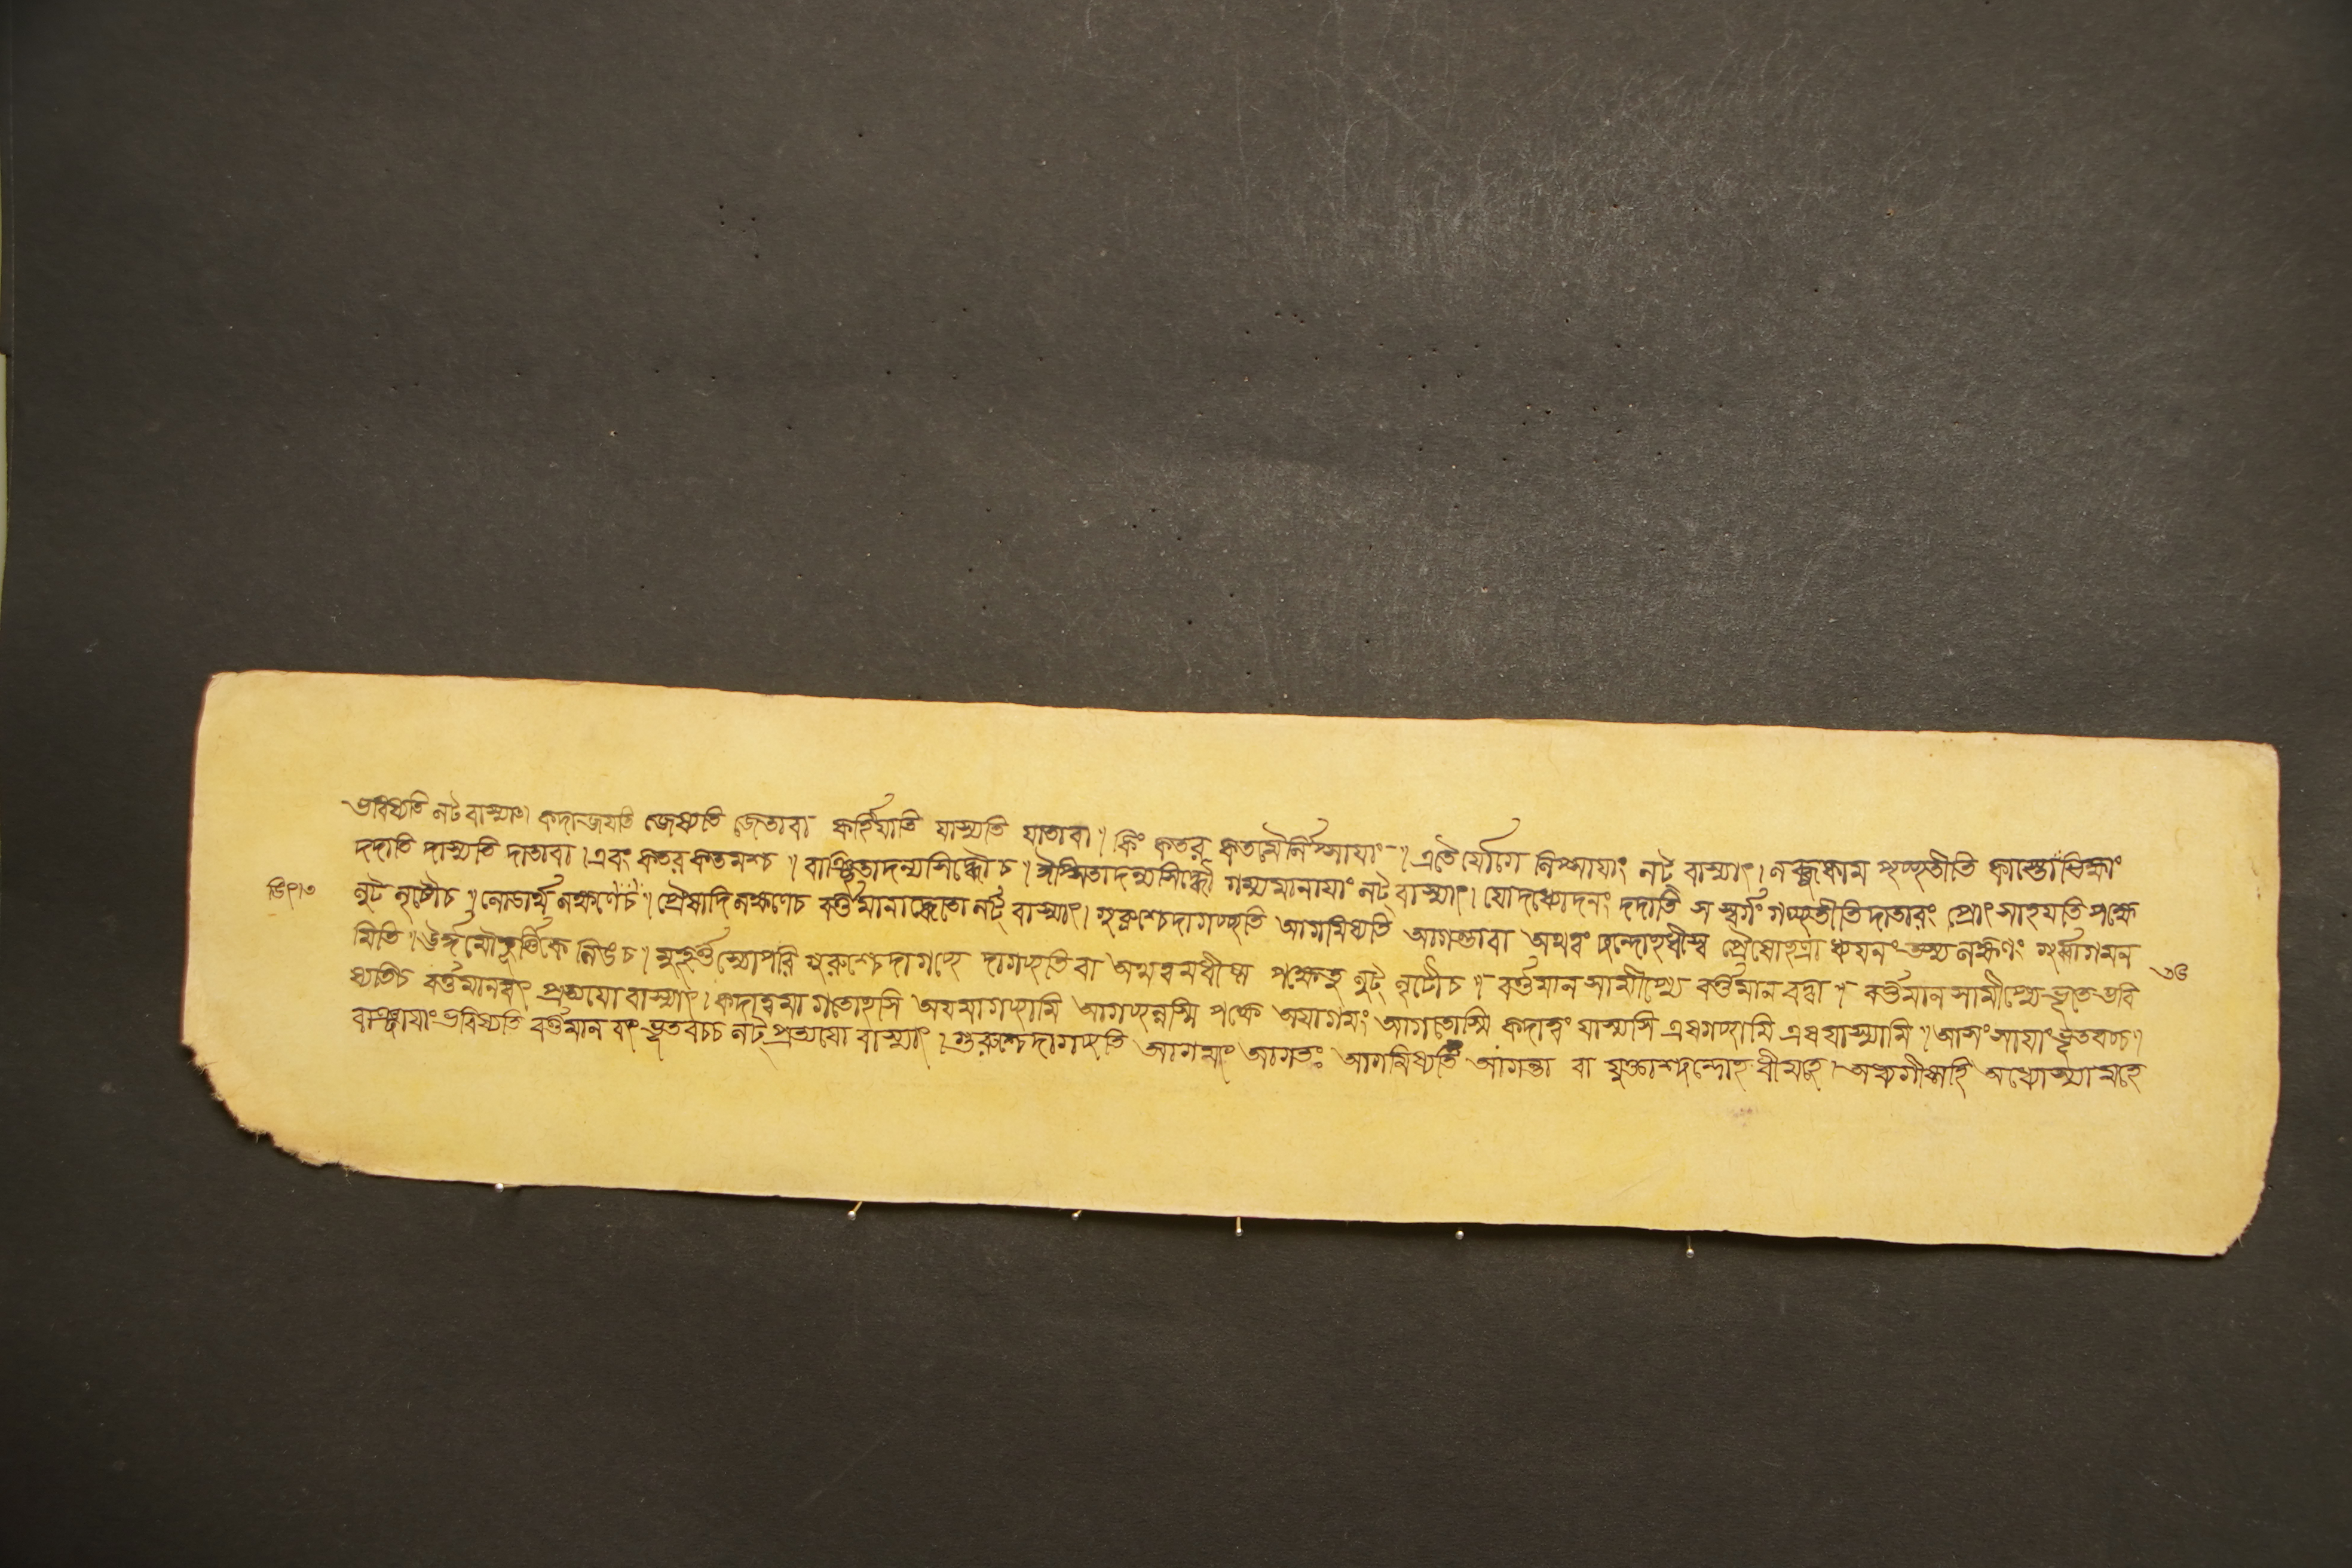 ভবিষ্যতি লট বা স্যাৎ। কদা জয়তি জেষ্যতি জেতা বা কর্হি যাতি যাস্যতি যাতা বা। কিং কতর কতমৈর্লিপ্সায়াং। এতৈর্যোগে লিপ্সায়াং লট বা স্যাৎ। লব্ধুকাম পৃচ্ছতীতি কাস্তো ভিক্ষাং
দদাতি দাস্যতি দাতা বা। এবং কতর কতমশ্চ। বাঞ্ছিতাদন্যসিদ্ধৌ চ। ঈপ্সিতাদন্যসিদ্ধৌ গম্যমানায়াং লট বা স্যাৎ। যো দধ্যোদনং দদাতি স স্বর্গং গচ্ছতীতি দাতারং প্রোৎসাহয়তি পক্ষে
লুট লৃটৌ চ। লোডর্থ লক্ষণে চ। প্রৈষাদি লক্ষণে চ বর্ত্তমানাদ্ধেতো লট্ বা স্যাৎ। গুরুশ্চেদাগচ্ছতি আগমিষ্যতি আগন্তা বা অথ ত্বং ছন্দোহধীষ্ব প্রৈষোহত্রাধ্যয়নং তস্য লক্ষণং গুর্ব্বাগমন
মিতি। ঊর্দ্ধমৌহূর্ত্তিকে লিঙ চ। মুহূর্ত্তস্যোপরি গুরুশ্চেদাগচ্ছে দাগচ্ছতি বা অথ ত্বমধীষ্ব পক্ষে তু লুট্ লৃটৌ চ। বর্ত্তমান সামীপ্যে বর্ত্তমান বদ্বা। বর্ত্তমান সামীপ্যে ভূতে ভবি
ষ্যতি চ বর্ত্তমানবৎ প্রত্যয়ো বা স্যাৎ। কদা ত্বমাগতোহসি অয়মাগচ্ছামি আগচ্ছন্নস্মি পক্ষে অয়াগমং আগতোস্মি কদা ত্বং যাস্যসি এষ গচ্ছামি এষ যাস্যামি। আশংসায়াং ভূতবচ্চ।
বাঞ্ছায়াং ভবিষ্যতি বর্ত্তমান বৎ ভূতবচ্চ লট্ প্রত্যয়ো বা স্যাৎ। গুরুশ্চেদাগচ্ছতি আগমৎ আগতঃ আগমিষ্যতি আগন্তা বা যুক্তাশ্ছন্দোহধীমহে। অধ্যগীষ্মহি অধ্যেষ্যামহে
৩৪